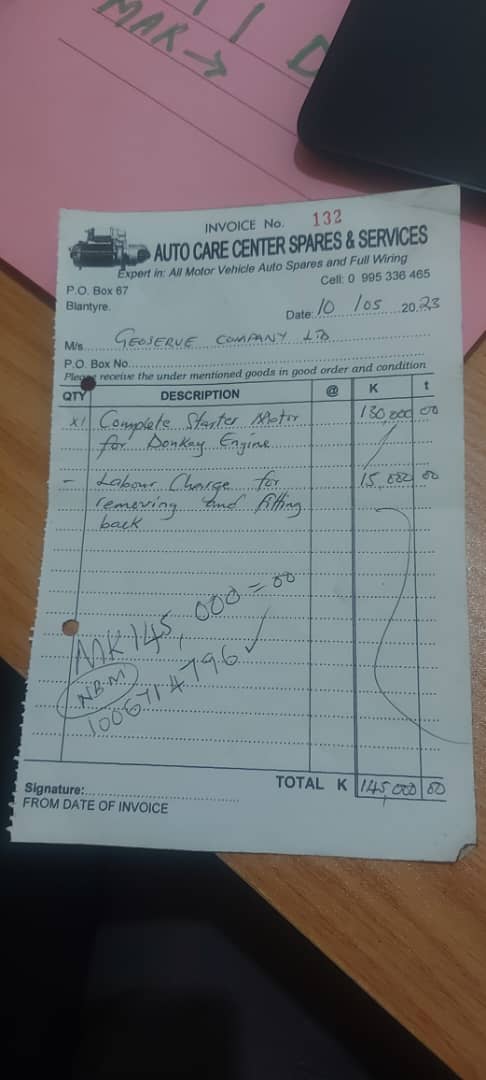 MAR →
INVOICE No. 132
AUTO CARE CENTER SPARES & SERVICES
Expert in: All Motor Vehicle Auto Spares and Full Wiring
P.O. Box 67
Cell: 0 995 336 465
Blantyre.
Date: 10 / 05 2023
M/s. GEOSERVE COMPANY LTD
P.O. Box No.
Please receive the under mentioned goods in good order and condition
QTY DESCRIPTION @ K t
x1 Complete Starter Motor 130,000 00
for Donkey Engine
- Labour Charge for 15,000 00
removing and fitting
back
MK 145,000=00
NBM
1006714796 ✓
TOTAL K 145,000 00
Signature:
FROM DATE OF INVOICE